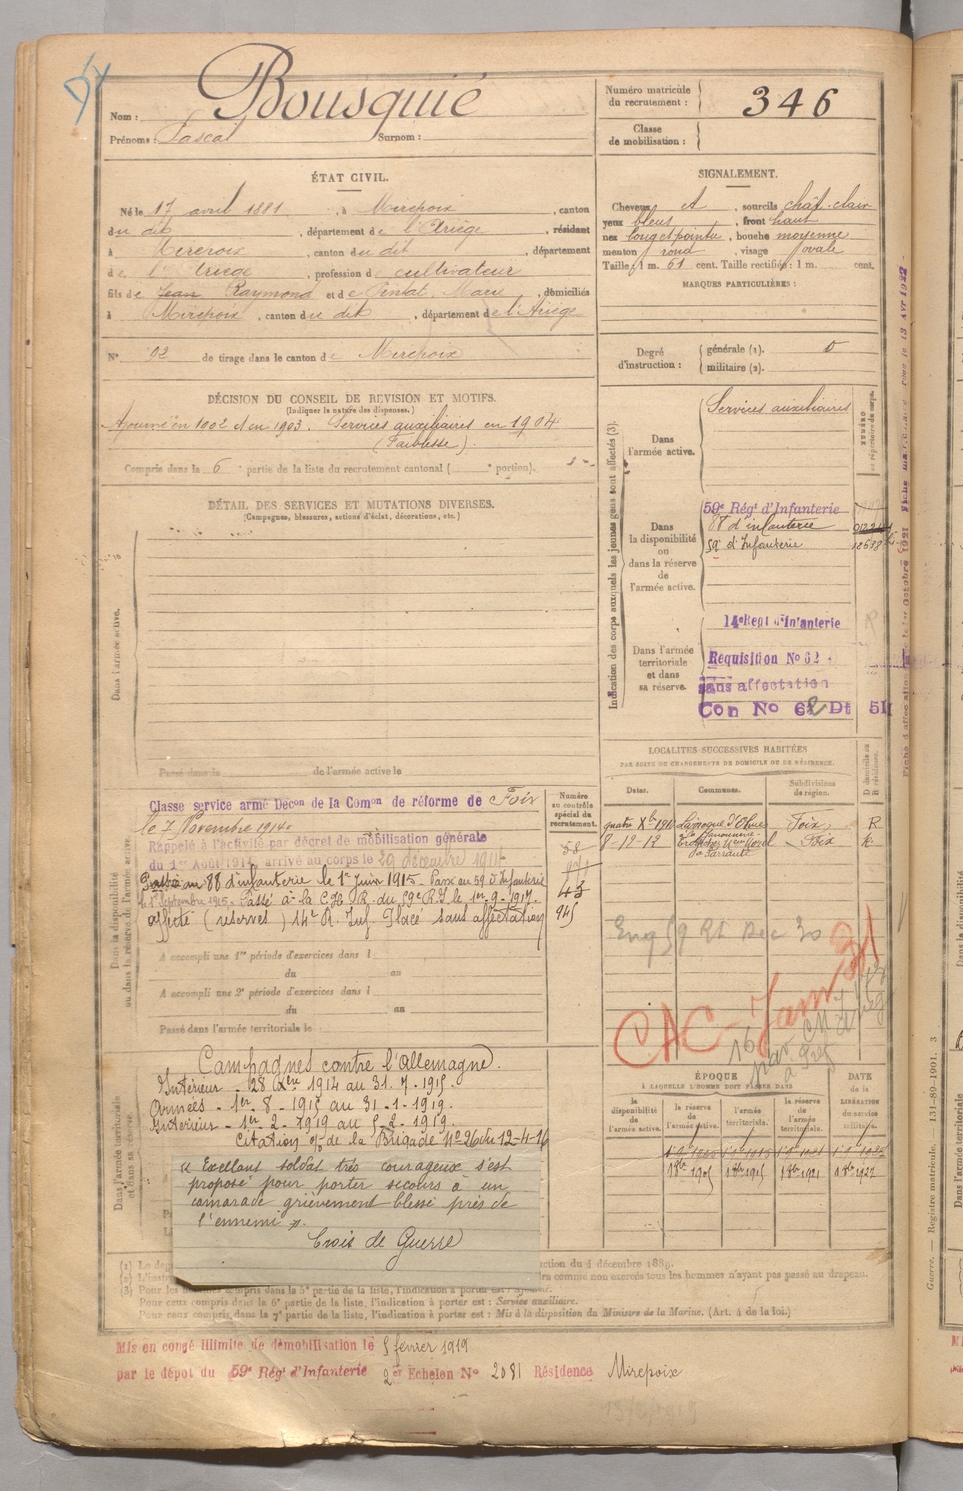 Nom : Bousquié
Prénoms : Pascal Surnom :
Numéro matricule du recrutement : 346
Classe de mobilisation :
ÉTAT CIVIL.
Né le 17 avril 1881, à Mirepoix, canton
du dit, département de l'Ariège, résidant
à Mirepoix, canton du dit, département
de l'Ariège, profession de cultivateur
fils de Jean Raymond et de Marie, domiciliés
à Mirepoix, canton du dit, département de l'Ariège
N° 92 de tirage dans le canton de Mirepoix
SIGNALEMENT.
Cheveux et, sourcils chât-clair
yeux bleus, front haut
nez long et pointu, bouche moyenne
menton rond, visage ovale
Taille : 1 m. 61 cent. Taille rectifiée : 1 m. cent.
MARQUES PARTICULIÈRES :
Degré d'instruction : générale (1). 0
militaire (2).
DÉCISION DU CONSEIL DE REVISION ET MOTIFS.
(Indiquer la nature des dispenses.)
Ajourné en 1902 et en 1903. Services auxiliaires en 1904
(Faiblesse).
Compris dans la 6e partie de la liste du recrutement cantonal ( e portion).
DÉTAIL DES SERVICES ET MUTATIONS DIVERSES.
(Campagnes, blessures, actions d'éclat, décorations, etc.)
Dans l'armée active.
Passé dans la de l'armée active le
Indication des corps auxquels les jeunes gens sont affectés (3).
NUMÉRO au répertoire du corps.
Dans l'armée active.
Services auxiliaires
Dans la disponibilité ou dans la réserve de l'armée active.
59e Régt d'Infanterie
88 d'infanterie
59e d'Infanterie
Dans l'armée territoriale et dans sa réserve.
14e Regt d'Infanterie
Requisition No 62
sans affectation
Con No 62 Dt 5H
LOCALITÉS SUCCESSIVES HABITÉES
PAR SUITE DE CHANGEMENTS DE DOMICILE OU DE RÉSIDENCE.
Dates. Communes. Subdivisions de région. D domicile ou R résidence.
quatre Xbre 1910 Laroque d'Olmes Foix R
8-12-12 Foix R
Dans la disponibilité ou dans la réserve de l'armée active
Numéro au contrôle spécial du recrutement.
Classe service armé Décon de la Comon de réforme de Foix
le 7 Novembre 1914.
Rappelé à l'activité par décret de mobilisation générale
du 1er Août 1914, arrivé au corps le 29 décembre 1914
Passé au 88 d'infanterie le 1er Juin 1915 - Passé au 59 d'Infanterie
le 1er Septembre 1915. Passé à la C.H.R. du 59e R.I. le 1er-9-1917.
affecté (réserves) 14e R. Inf. Placé sans affectation
43
945
A accompli une 1re période d'exercices dans l
du au
A accompli une 2e période d'exercices dans l
du au
Passé dans l'armée territoriale le
Eng 59 RI Dec 30
CAC Janv 31
Dans l'armée territoriale et dans sa réserve.
Campagnes contre l'Allemagne.
Intérieur - 28 Xbre 1914 au 31-7-1915.
Armées - 1er-8-1915 au 31-1-1919.
Intérieur - 1er-2-1919 au 5-2-1919.
Citation o/ de la Brigade No 26 du 12-4-16
« Excellent soldat très courageux s'est
proposé pour porter secours à un
camarade grièvement blessé près de
l'ennemi ».
Croix de Guerre
ÉPOQUE
À LAQUELLE L'HOMME DOIT PASSER DANS
DATE de la LIBÉRATION du service militaire.
la disponibilité de l'armée active. la réserve de l'armée active. l'armée territoriale. la réserve de l'armée territoriale.
1 8bre 1905 1 8bre 1915 1 8bre 1921 1 8bre 1927
(1) Le
(2) L'inst
(3) Pour les hommes compris dans la 5e partie de la liste, l'indication à porter est : Ajourné.
ction du 4 décembre 1889.
dra comme non exercés tous les hommes n'ayant pas passé au drapeau.
Pour ceux compris dans la 6e partie de la liste, l'indication à porter est : Service auxiliaire.
Pour ceux compris dans la 7e partie de la liste, l'indication à porter est : Mis à la disposition du Ministre de la Marine. (Art. 4 de la loi.)
Mis en congé illimité de démobilisation le 5 février 1919
par le dépôt du 59e Régt d'Infanterie 2er Echelon No 2081 Résidence Mirepoix
Guerre. — Registre matricule. — 131-89-1901. 3